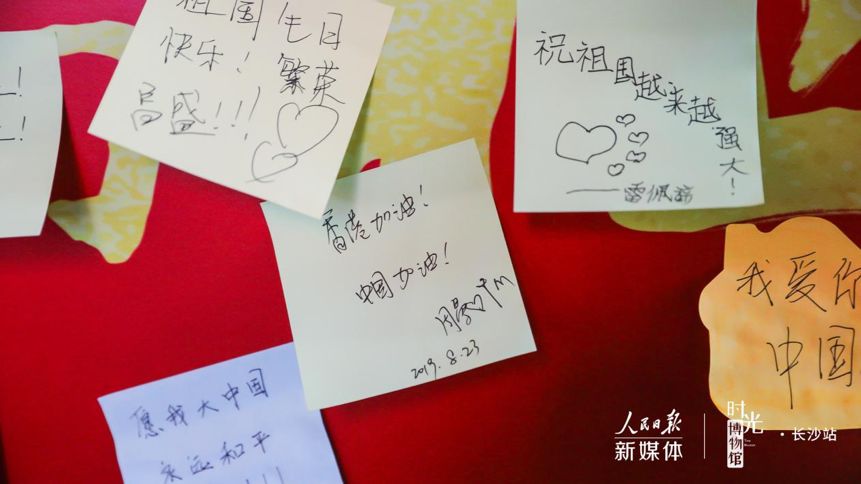 祖国生日
快乐！
繁荣
昌盛!!!
祝祖国越来越
强大！
香港加油！
中国加油！
2019.8.23
我爱你
中国
愿我大中国
永远和平
!!!
人民日报
新媒体
时光
博物馆
·长沙站